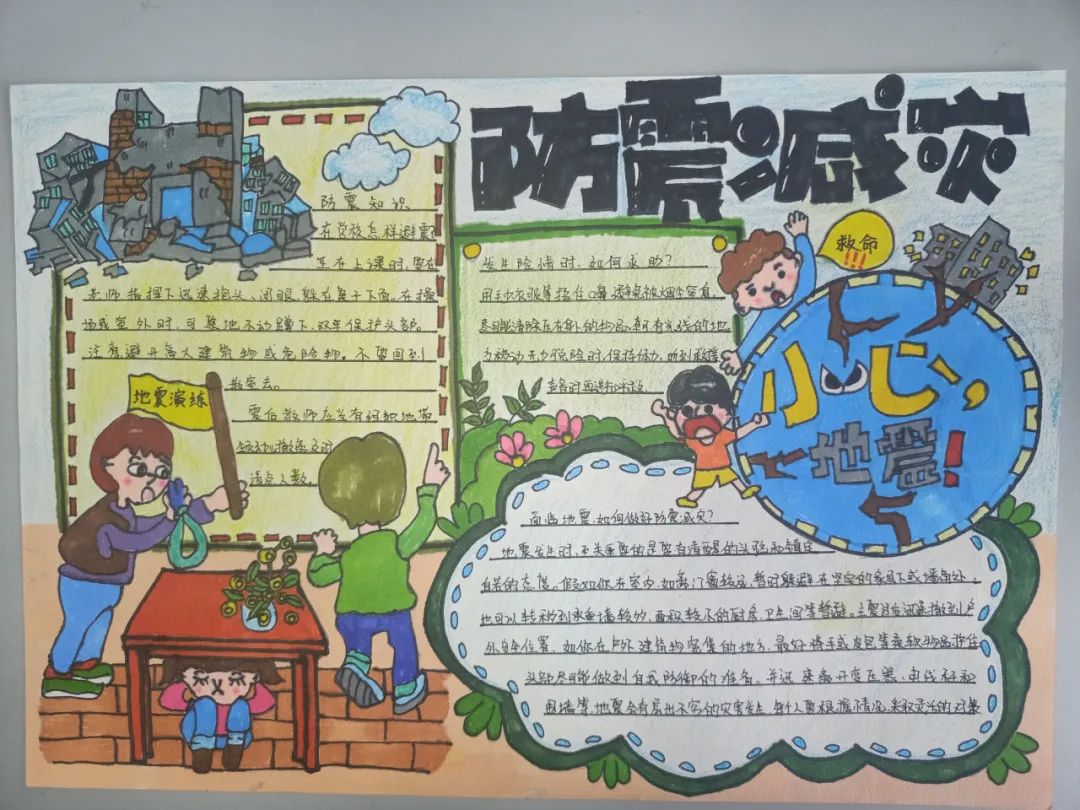 防震减灾
防震知识
在学校怎样避震?
正在上课时,要在
老师指挥下迅速抱头、闭眼、躲在桌子下面。在操
场或室外时,可原地不动蹲下,双手保护头部。
注意避开高大建筑物或危险物。不要回到
教室去。
震后教师应当有组织地带
清点人数。
地震演练
发生险情时,如何求助?
用毛巾衣服等捂住口鼻
尽可能清除压在身上的物品,朝有光线的地
方移动,无力脱险时,保持体力,听到救援
声音时再进行呼救
救命
!!!
小心,
地震!
面临地震,如何做好防震减灾?
地震发生时,至关重要的是要有清醒的头脑和镇定
自若的态度。假如你在室内,如离门窗较远,暂时躲避在坚实的家具下或墙角处,
也可以转移到承重墙较多、面积较小的厨房、卫生间等暂避。主震且后迅速撤到户
外 位置,如你在户外建筑物密集的地方,最好将手或皮包等柔软物品护住
头部尽可能做到自我防御的准备,并迅速离开变压器、电线杆和
围墙等,地震会有层出不穷的灾害发生,每个人要根据情况,采取灵活的对策